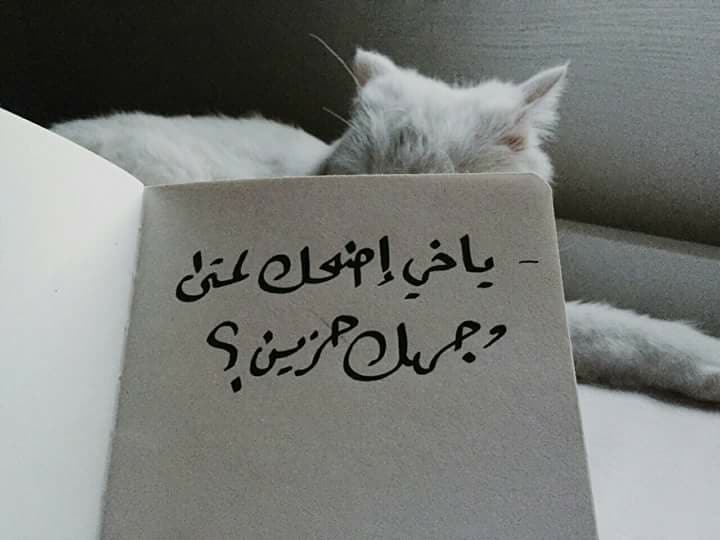 - ياخي إضحك لمتى
وجهك حزين ؟